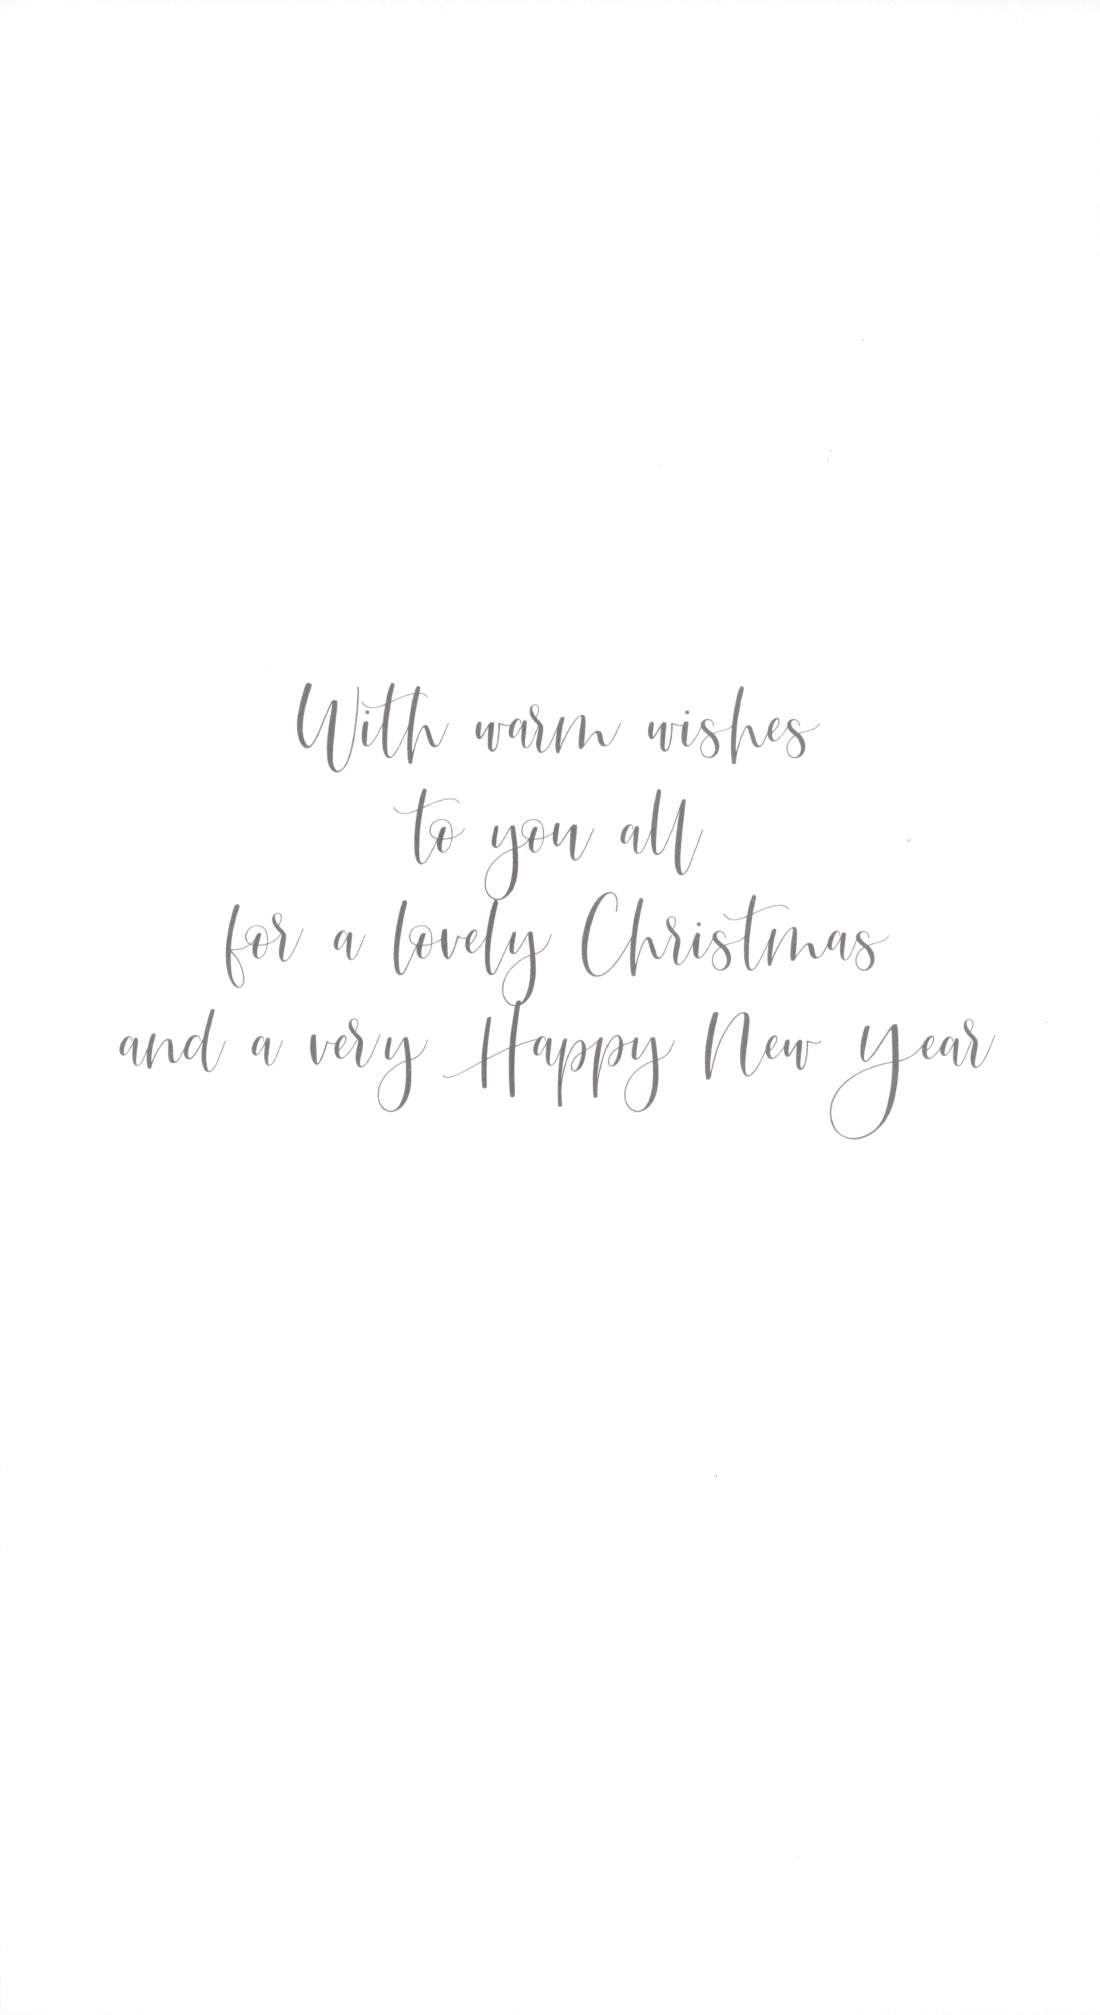 With warm wishes
to you all
for a lovely Christmas
and a very Happy New Year